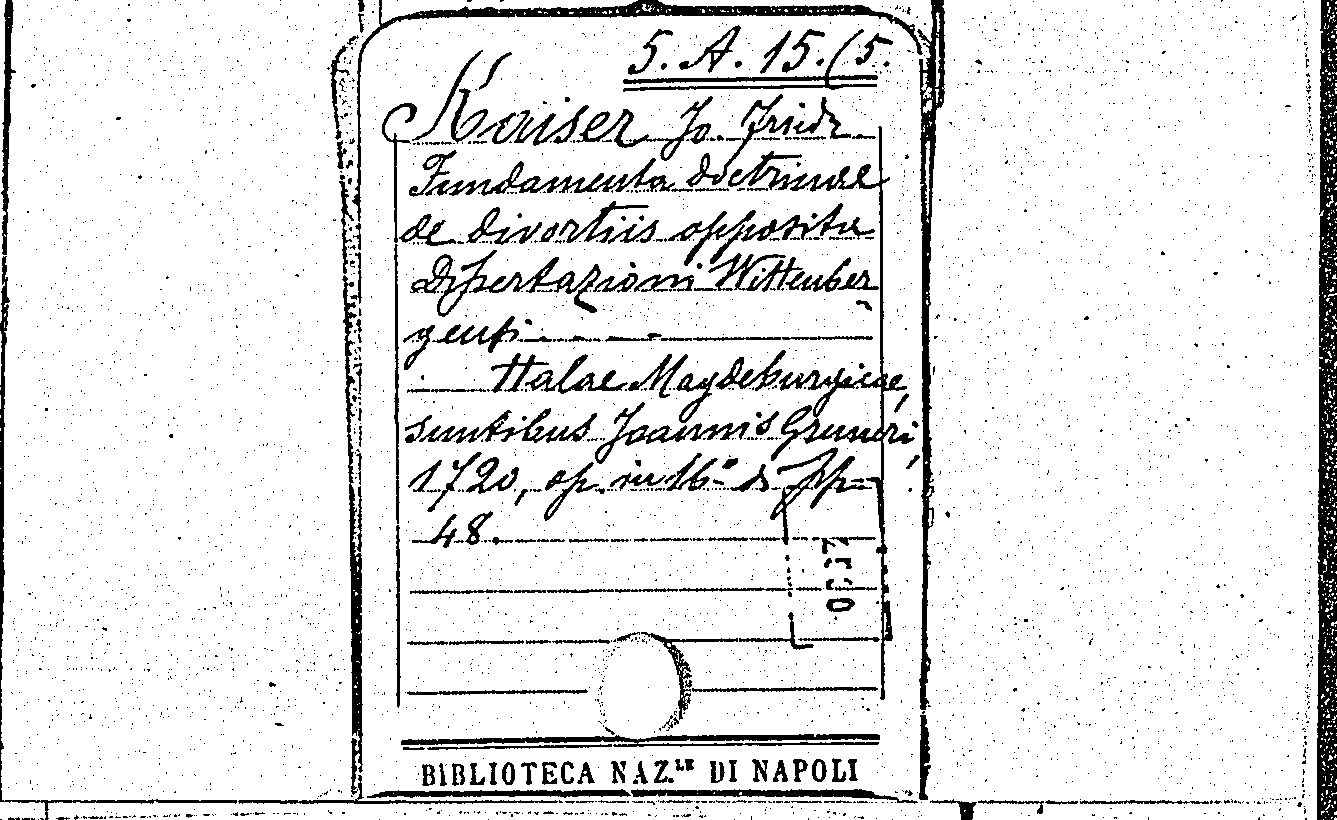 5. A. 15.(5.
Kaiser Jo. Friedr.
Fundamenta doctrinae
de divortiis opposita
Dissertazioni Wittenber
gensi
Halae Magdeburgicae,
suntibus Joannis Gruneri,
1720, op. in 16° di pp.
48.
BIBLIOTECA NAZ.LE DI NAPOLI